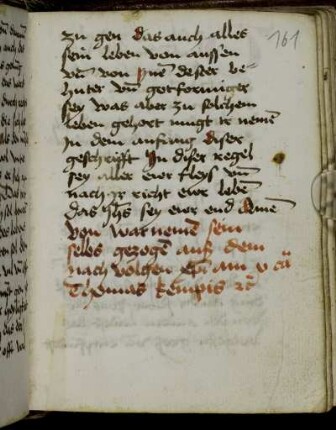 161
zu gen das auch alles
sein leben von aussen
vñ von Jnē dester be¬
hüter vñ gotformiger
sey was aber zu solchem
leben gehort mügt ir nemē
Jn dem anfang diser
geschrifft Jn diser regel
sey aller ewr fleys vñ
nach ir richt ewr lebē
das ihs sey ewr end Amē
Von war nemen sein
selbs gezogē auß dem
nach volgen am v cā
Thomas kempis